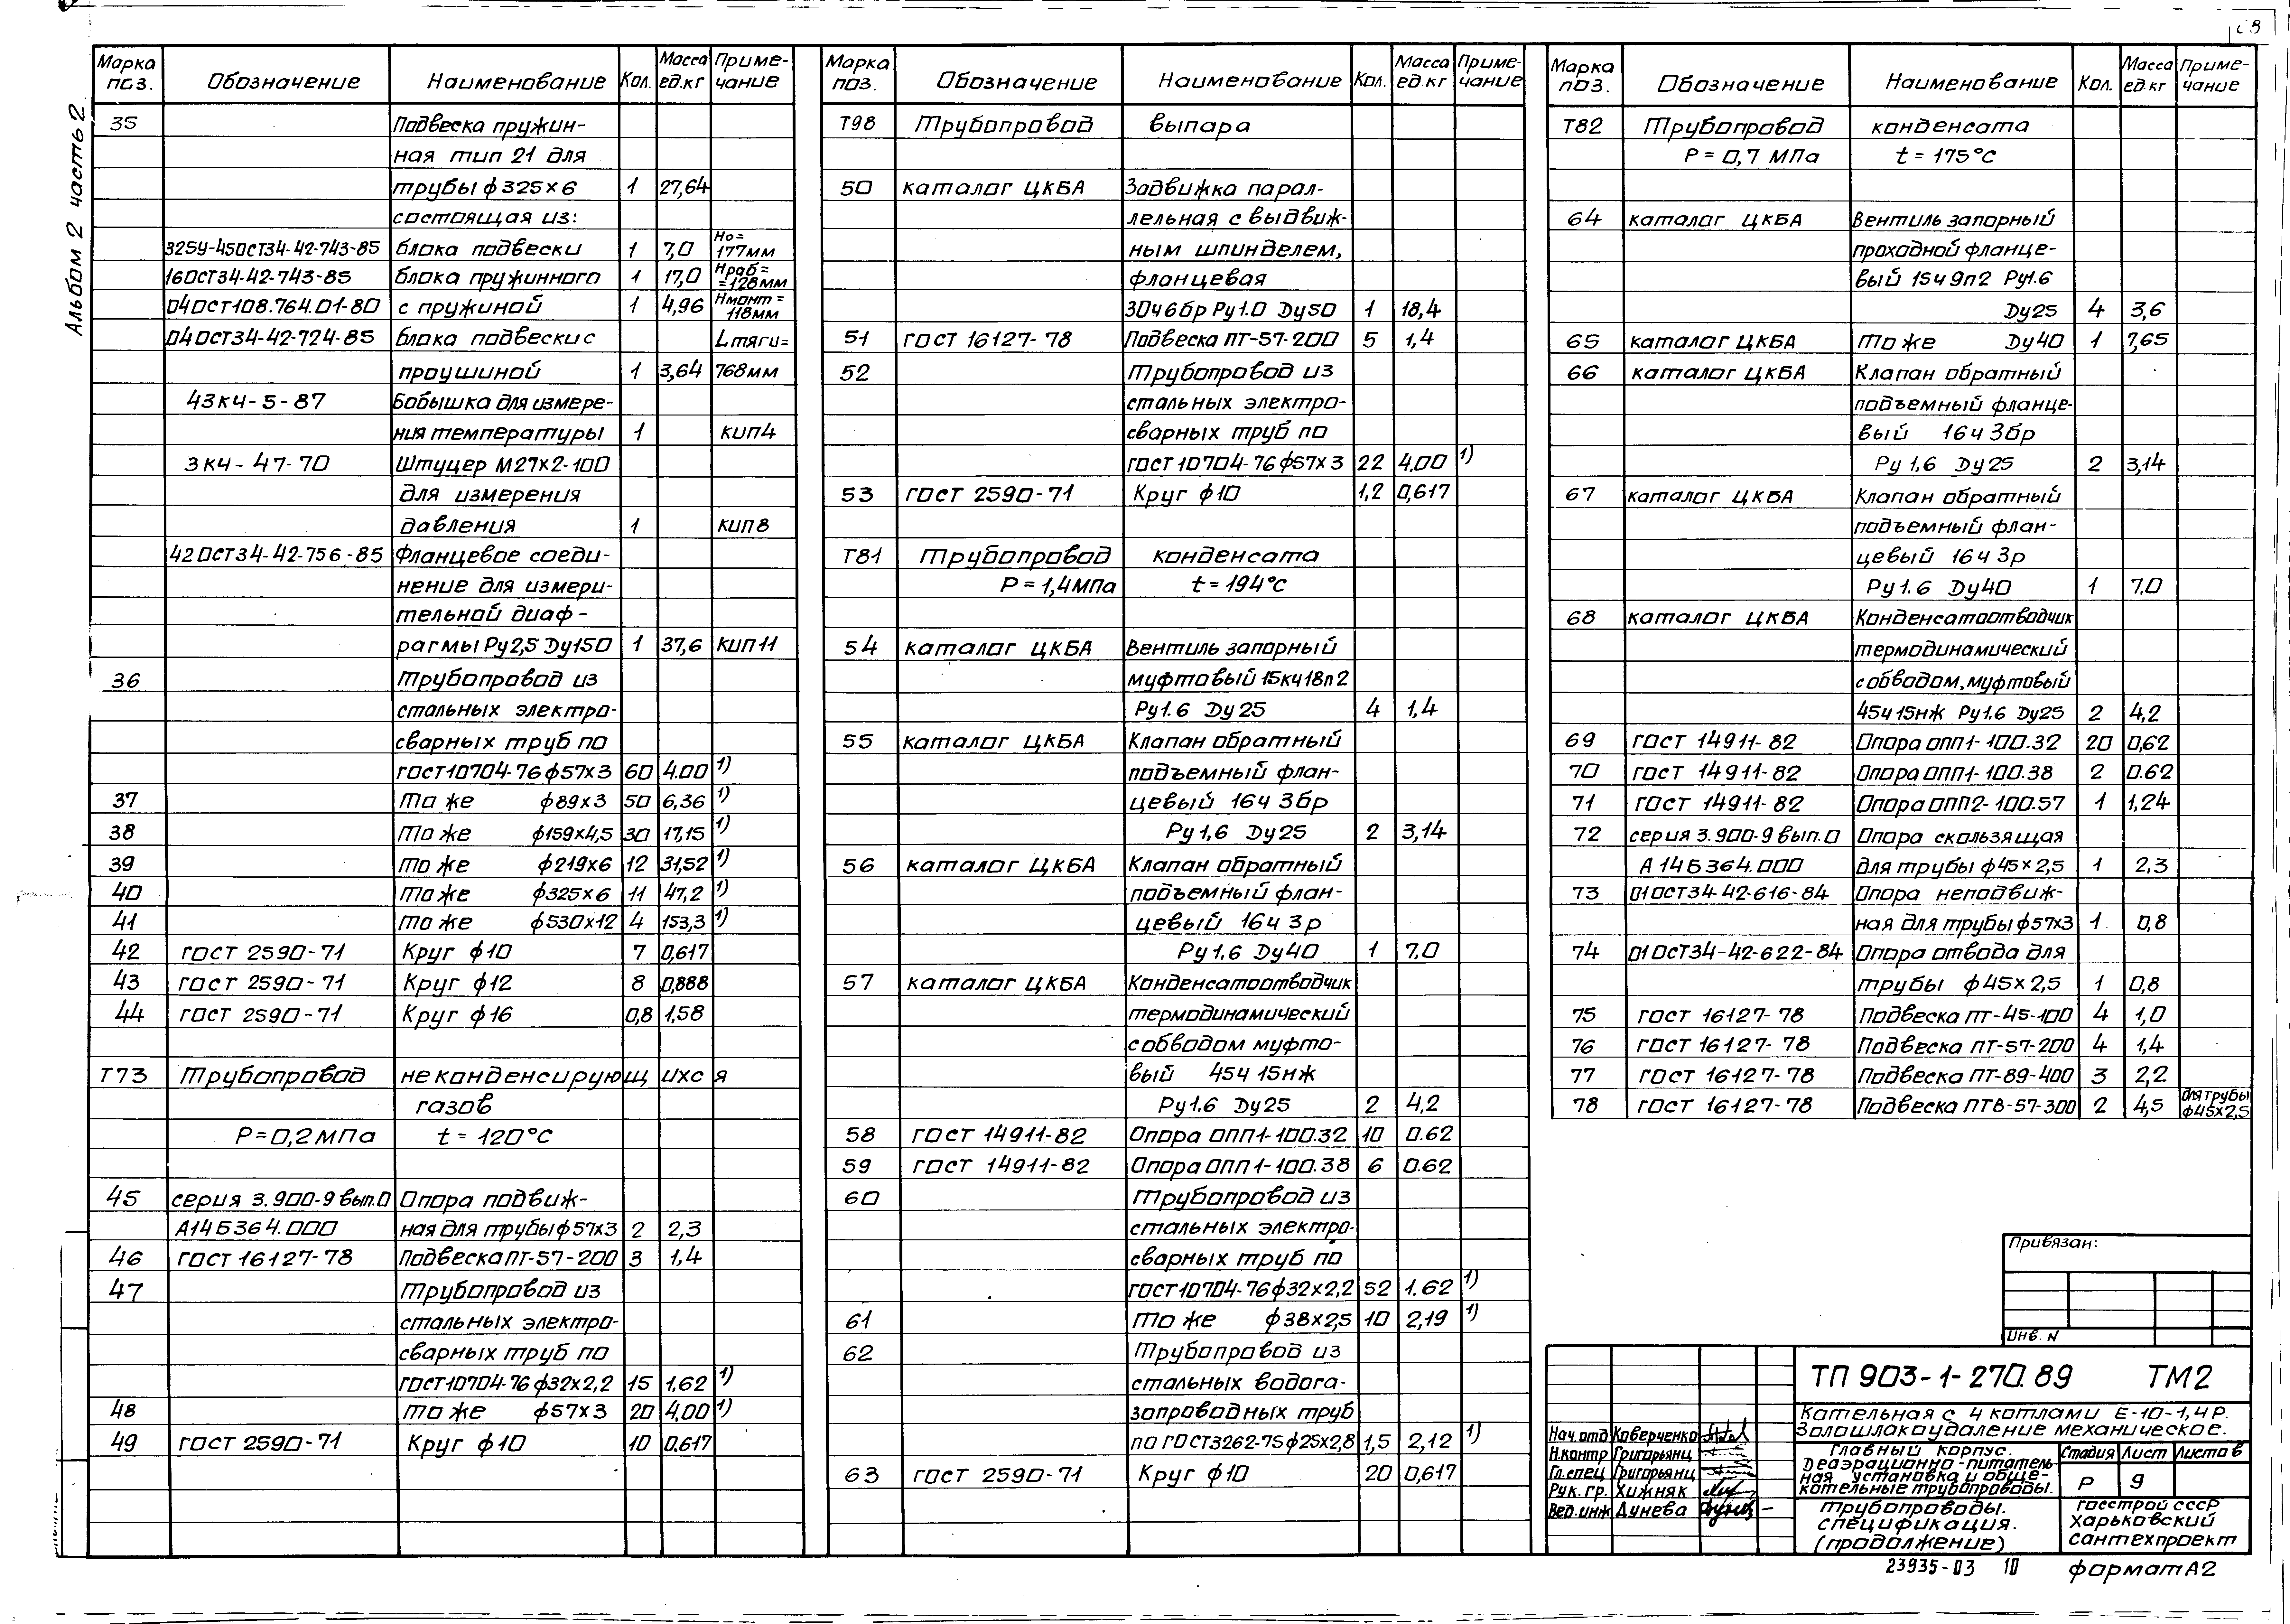 Альбом 2 часть 2
Марка поз. Обозначение Наименование Кол. Масса ед.кг Приме-чание
35 Подвеска пружин-
ная тип 21 для
трубы ф325×6 1 27,64
состоящая из:
325У-45ОСТ34-42-743-85 блока подвески 1 7,0 Но= 177мм
16ОСТ34-42-743-85 блока пружинного 1 17,0 Нраб= =128мм
04ОСТ108.764.01-80 с пружиной 1 4,96 Нмонт= 118мм
04ОСТ34-42-724-85 блока подвески с Lтяги=
проушиной 1 3,64 768мм
43кч-5-87 Бобышка для измере-
ния температуры 1 кип4
3кч-47-70 Штуцер М27×2-100
для измерения
давления 1 кип8
42ОСТ34-42-756-85 Фланцевое соеди-
нение для измери-
тельной диаф-
рагмы Ру2,5 Ду150 1 37,6 кип11
36 Трубопровод из
стальных электро-
сварных труб по
ГОСТ10704-76 ф57×3 60 4.00 1)
37 То же ф89×3 50 6,36 1)
38 То же ф159×4,5 30 17,15 1)
39 То же ф219×6 12 31,52 1)
40 То же ф325×6 11 47,2 1)
41 То же ф530×12 4 153,3 1)
42 ГОСТ 2590-71 Круг ф10 7 0,617
43 ГОСТ 2590-71 Круг ф12 8 0,888
44 ГОСТ 2590-71 Круг ф16 0,8 1,58
Т73 Трубопровод неконденсирующихся
газов
Р=0,2МПа t=120°С
45 серия 3.900-9 вып.0 Опора подвиж-
А14Б364.000 ная для трубы ф57×3 2 2,3
46 ГОСТ 16127-78 Подвеска ПТ-57-200 3 1,4
47 Трубопровод из
стальных электро-
сварных труб по
ГОСТ10704-76 ф32×2,2 15 1,62 1)
48 То же ф57×3 20 4,00 1)
49 ГОСТ 2590-71 Круг ф10 10 0,617
Марка поз. Обозначение Наименование Кол. Масса ед.кг Приме-чание
Т98 Трубопровод выпара
50 каталог ЦКБА Задвижка парал-
лельная с выдвиж-
ным шпинделем,
фланцевая
30ч6бр Ру1.0 Ду50 1 18,4
51 ГОСТ 16127-78 Подвеска ПТ-57-200 5 1,4
52 Трубопровод из
стальных электро-
сварных труб по
ГОСТ10704-76 ф57×3 22 4,00 1)
53 ГОСТ 2590-71 Круг ф10 1,2 0,617
Т81 Трубопровод конденсата
Р=1,4МПа t=194°С
54 каталог ЦКБА Вентиль запорный
муфтовый 15кч18п2
Ру1.6 Ду25 4 1,4
55 каталог ЦКБА Клапан обратный
подъемный флан-
цевый 16ч 3бр
Ру1,6 Ду25 2 3,14
56 каталог ЦКБА Клапан обратный
подъемный флан-
цевый 16ч 3р
Ру1.6 Ду40 1 7.0
57 каталог ЦКБА Конденсатоотводчик
термодинамический
с обводом муфто-
вый 45ч 15нж
Ру1.6 Ду25 2 4,2
58 ГОСТ 14911-82 Опора ОПП1-100.32 10 0.62
59 ГОСТ 14911-82 Опора ОПП1-100.38 6 0.62
60 Трубопровод из
стальных электро-
сварных труб по
ГОСТ10704-76 ф32×2,2 52 1.62 1)
61 То же ф38×2,5 10 2,19 1)
62 Трубопровод из
стальных водога-
зопроводных труб
по ГОСТ3262-75 ф25×2,8 1,5 2,12 1)
63 ГОСТ 2590-71 Круг ф10 20 0,617
Марка поз. Обозначение Наименование Кол. Масса ед.кг Приме-чание
Т82 Трубопровод конденсата
Р=0,7 МПа t=175°С
64 каталог ЦКБА Вентиль запорный
проходной фланце-
вый 15ч 9п2 Ру1.6
Ду25 4 3,6
65 каталог ЦКБА То же Ду40 1 7,65
66 каталог ЦКБА Клапан обратный
подъемный фланце-
вый 16ч 3бр
Ру1,6 Ду25 2 3,14
67 каталог ЦКБА Клапан обратный
подъемный флан-
цевый 16ч 3р
Ру1.6 Ду40 1 7.0
68 каталог ЦКБА Конденсатоотводчик
термодинамический
с обводом, муфтовый
45ч15нж Ру1.6 Ду25 2 4,2
69 ГОСТ 14911-82 Опора ОПП1-100.32 20 0,62
70 ГОСТ 14911-82 Опора ОПП1-100.38 2 0.62
71 ГОСТ 14911-82 Опора ОПП2-100.57 1 1,24
72 серия 3.900-9 вып.0 Опора скользящая
А14Б364.000 для трубы ф45×2,5 1 2,3
73 01ОСТ34-42-616-84 Опора неподвиж-
ная для трубы ф57×3 1 0,8
74 01ОСТ34-42-622-84 Опора отвода для
трубы ф45×2,5 1 0,8
75 ГОСТ 16127-78 Подвеска ПТ-45-100 4 1,0
76 ГОСТ 16127-78 Подвеска ПТ-57-200 4 1,4
77 ГОСТ 16127-78 Подвеска ПТ-89-400 3 2,2
78 ГОСТ 16127-78 Подвеска ПТВ-57-300 2 4,5 для трубы ф45×2,5
Привязан:
Инв. N
ТП 903-1-270.89 ТМ2
Котельная с 4 котлами Е-10-1,4Р.
Золошлакоудаление механическое.
Нач.отд Коверченко
Н.контр Григорьянц
Гл.спец Григорьянц
Рук.гр. Хижняк
Вед.инж Дунева
Главный корпус.
Деаэрационно-питатель-
ная установка и обще-
котельные трубопроводы.
Стадия Лист Листов
Р 9
Трубопроводы.
Спецификация.
(продолжение)
Госстрой СССР
Харьковский
Сантехпроект
23935-03 10 формат А2